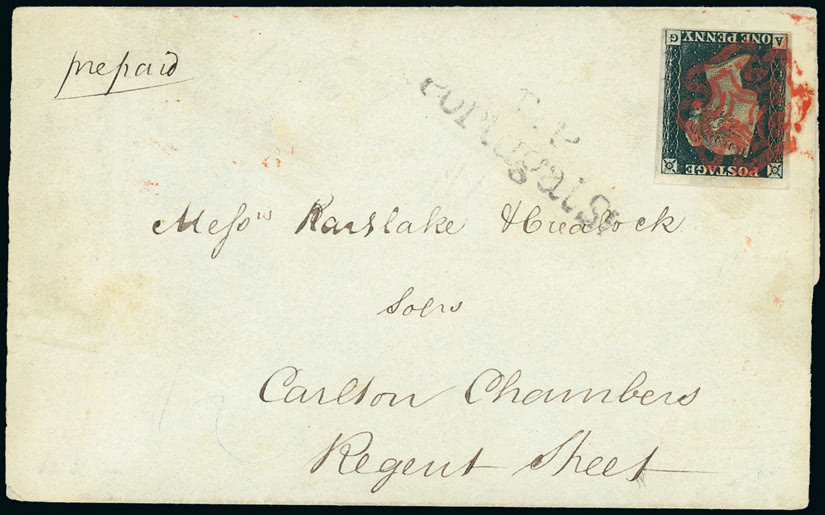 prepaid
POSTAGE
ONE PENNY
A G
T.P
Portugal St
Messrs Karslake &
Solrs
Carlton Chambers
Regent Street